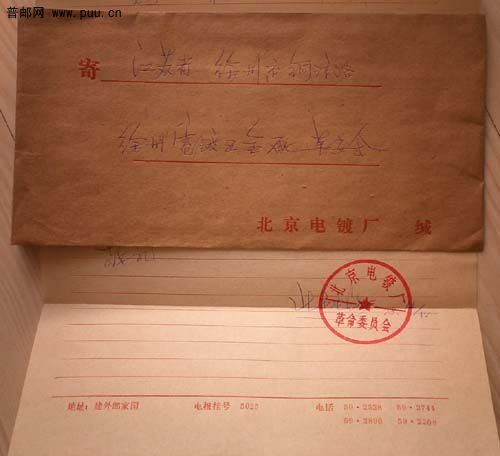 普邮网 www.puu.cn
寄
江苏省 徐州市铜沛路
徐州电镀五金厂 革委会
北京电镀厂 缄
敬礼
北京电镀厂
革命委员会
地址：建外郎家园 电报挂号 5025 电话 59·2528 59·2744
59·2896 59·2208